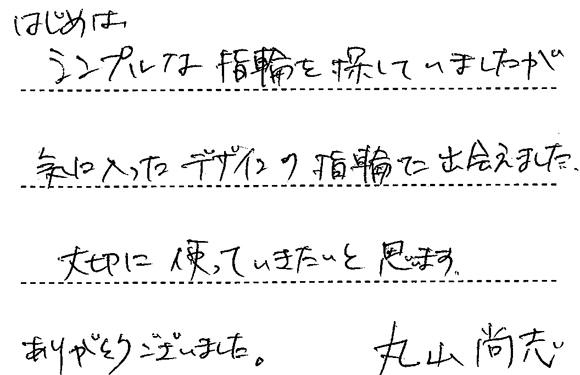 はじめは、
シンプルな指輪を探していましたが
気に入ったデザインの指輪に出会えました.
大切に使っていきたいと思います.
ありがとうございました。 丸山尚志